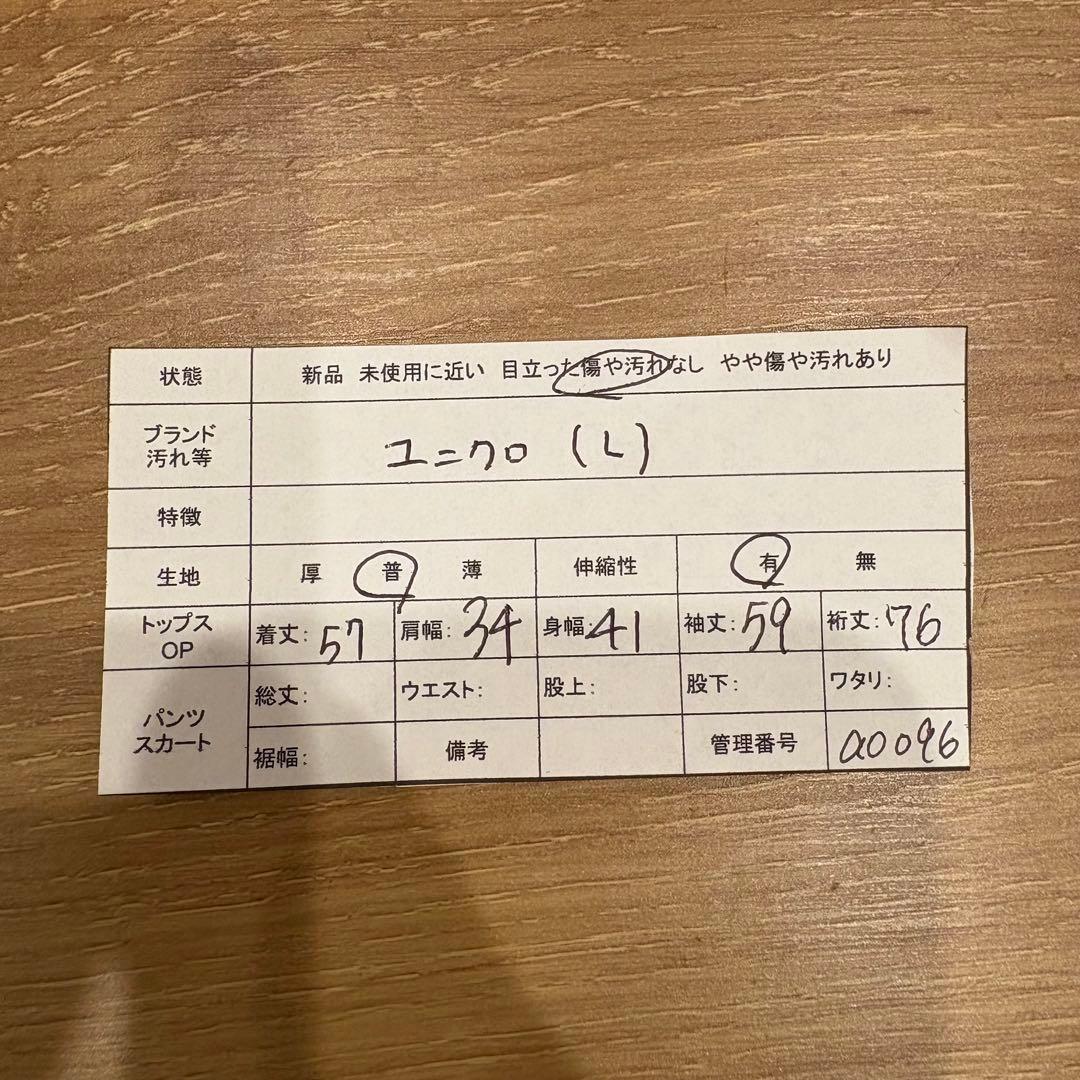 状態 新品 未使用に近い 目立った傷や汚れなし やや傷や汚れあり
ブランド
汚れ等
ユニクロ (L)
特徴
生地 厚 普 薄 伸縮性 有 無
トップス
OP
着丈: 57 肩幅: 34 身幅: 41 袖丈: 59 裄丈: 76
パンツ
スカート
総丈: ウエスト: 股上: 股下: ワタリ:
裾幅: 備考 管理番号 a0096